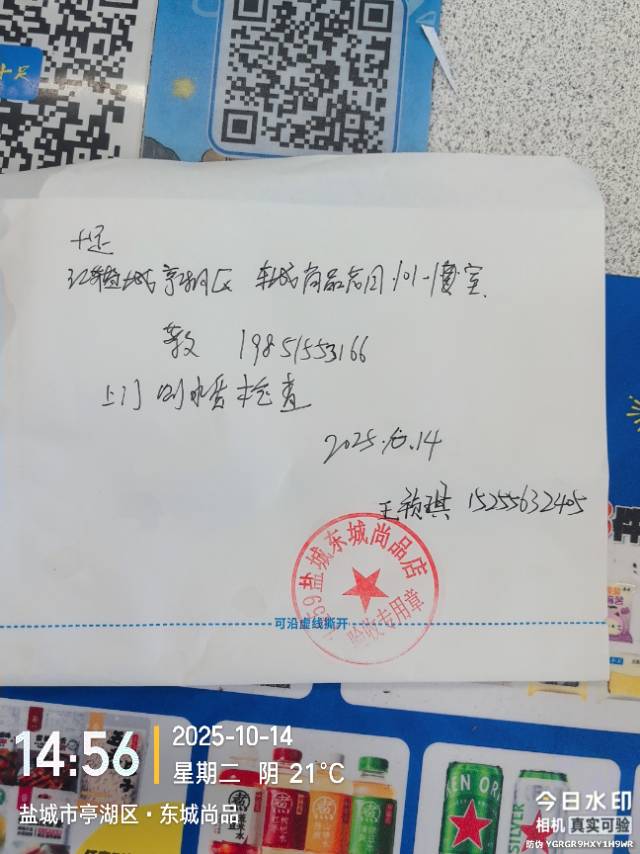 十足
江苏盐城亭湖区 东城尚品名园 101-1
19851553166
上门 检查
2025.10.14
王祯琪 15255632405
盐城东城尚品店
验收专用章
可沿虚线撕开
14:56
2025-10-14
星期二 阴 21℃
盐城市亭湖区·东城尚品
今日水印
相机 真实可验
防伪 YGRGR9HXY1H9WR